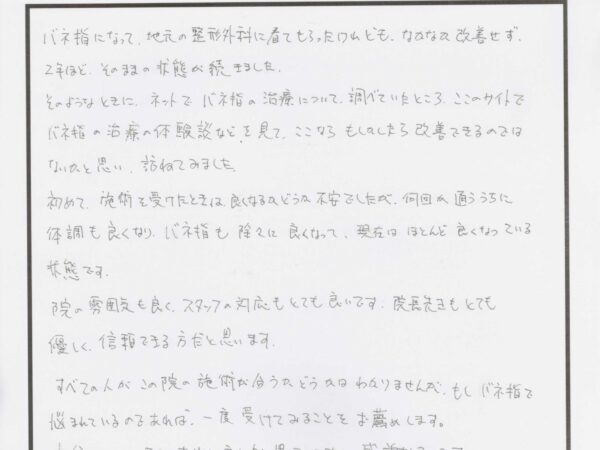 バネ指になって、地元の整形外科に看てもらったけれども、なかなか改善せず、
2年ほど、そのままの状態が続きました。
そのようなときに、ネットで バネ指の治療について、調べていたところ、ここのサイトで
バネ指の治療の体験談などを見て、ここなら もしかしたら改善できるのでは
ないかと思い、訪ねてみました。
初めて、施術を受けたときは、良くなるかどうか不安でしたが、何回か通ううちに
体調も良くなり、バネ指も 除々に良くなって、現在は ほとんど良くなっている
状態です。
院の雰囲気も良く、スタッフの対応もとても良いです。院長先生もとても
優しく、信頼できる方だと思います。
すべての人が この院の施術が合うかどうかはわかりませんが、もし バネ指で
悩まれているのであれば、一度受けてみることをお薦めします。